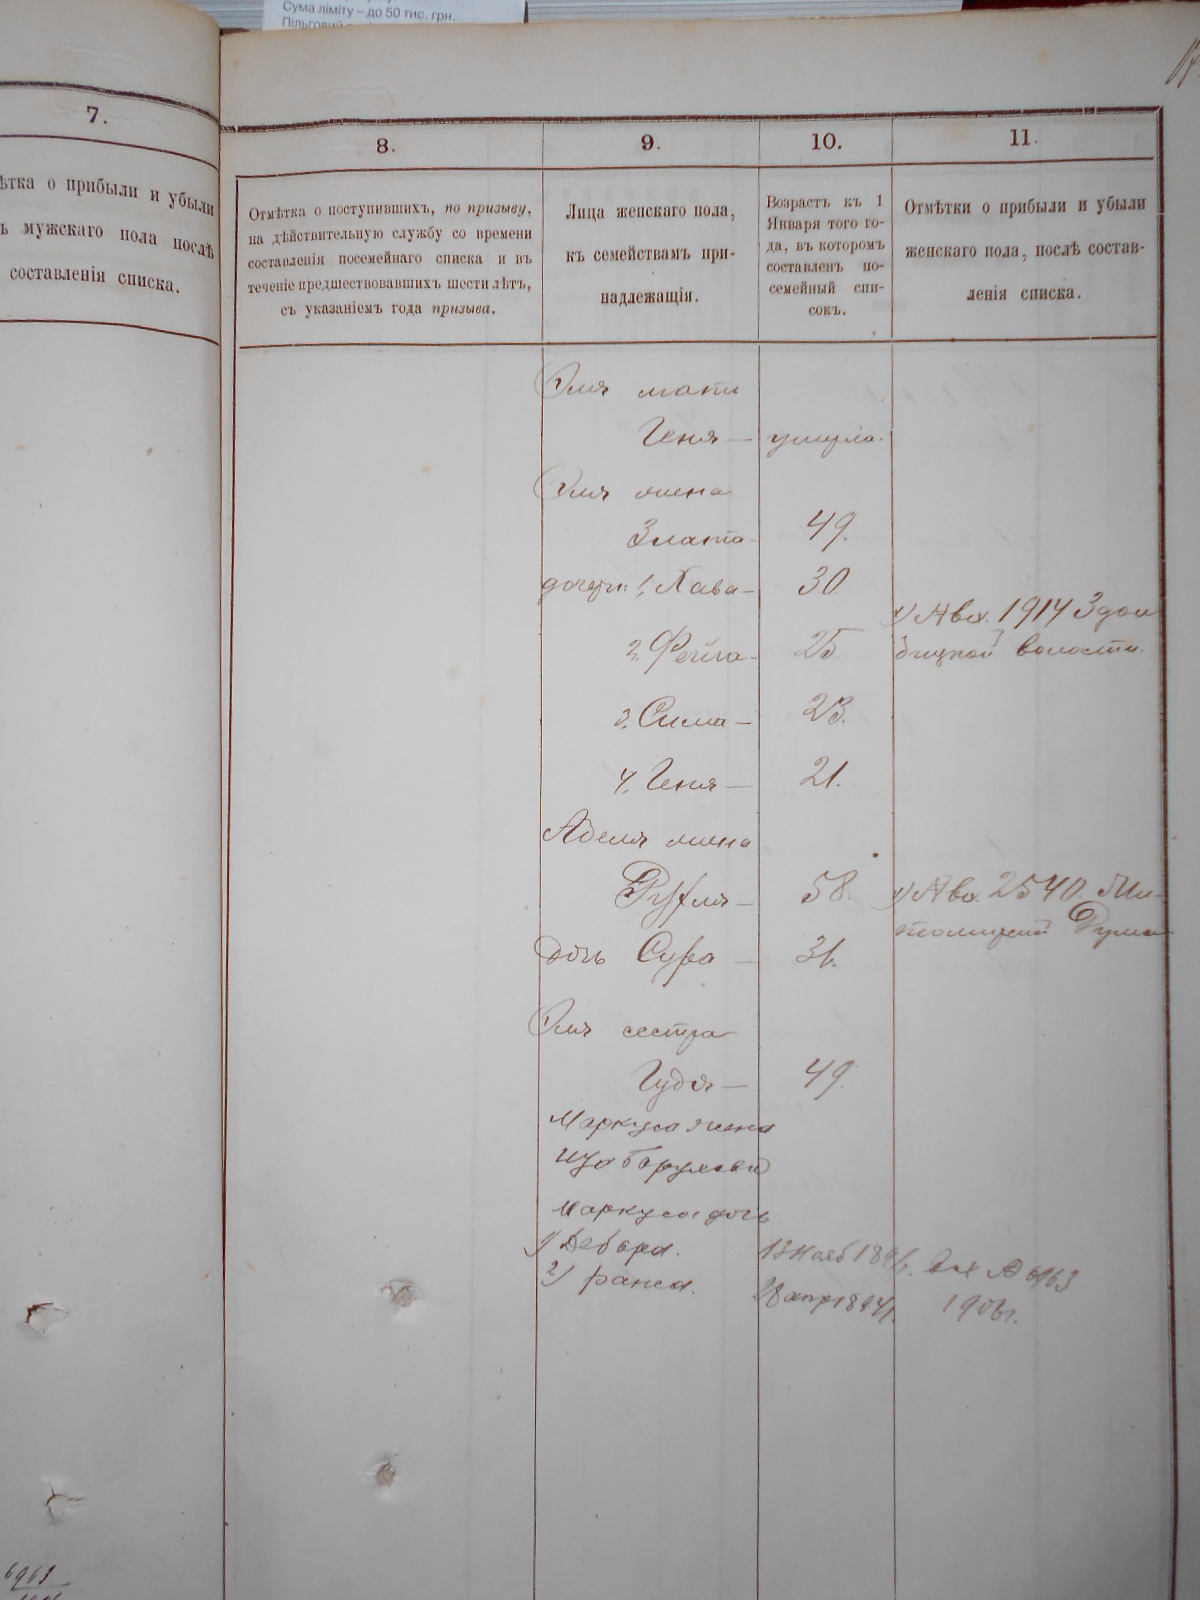 Сума ліміту – до 50 тис. грн.
Пільговий
7.
8.
9.
10.
11.
ѣтка о прибыли и убыли
ъ мужскаго пола послѣ
составленія списка.
Отмѣтка о поступившихъ, по призыву,
на дѣйствительную службу со времени
составленія посемейнаго списка и въ
теченіе предшествовавшихъ шести лѣтъ,
съ указаніемъ года призыва.
Лица женскаго пола,
къ семействамъ при-
надлежащія.
Возрастъ къ 1
Января того го-
да, въ которомъ
составленъ по-
семейный спи-
сокъ.
Отмѣтки о прибыли и убыли
женскаго пола, послѣ состав-
ленія списка.
Его мать
Геня — умерла.
Его жена
Злата — 49.
дочери: 1, Хава — 30.
2, Фейга — 25.
1914 Здол
бицкой волости.
3, Сима — 23.
4, Геня — 21.
Абеля жена
Рухля — 58.
2540.
дочь Сура — 31.
Его сестра
Гудя — 49.
Маркуса жена
Маркуса дочь
1) Дебора. 13 Нояб 189
2) раиса. 28 апр 1894г.
6963
190
6963